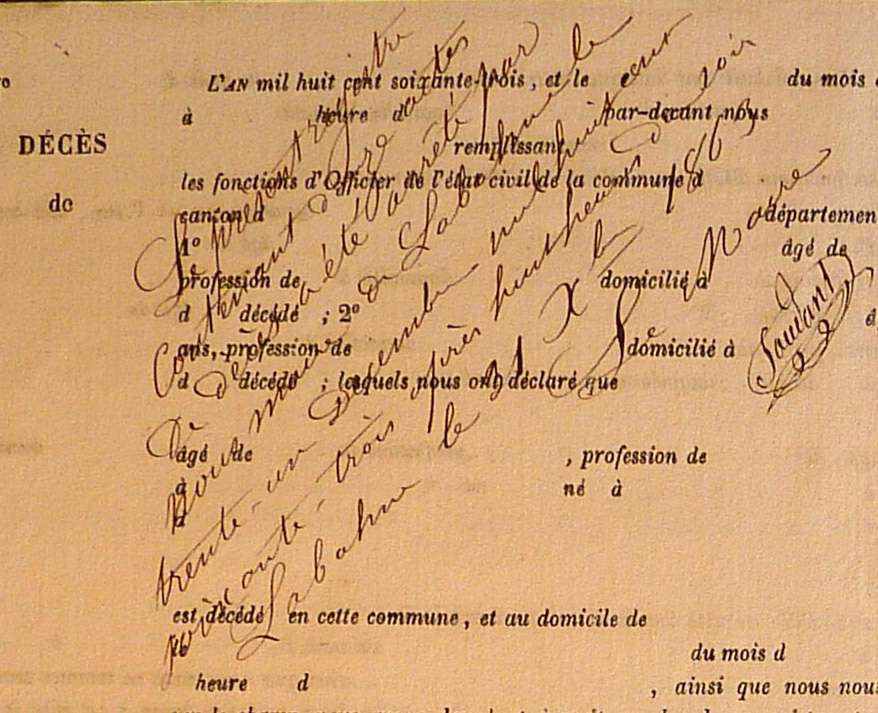 L'AN mil huit cent soixante-trois, et le du mois
à heure d par-devant nous
DÉCÈS
remplissant
les fonctions d'Officier de l'état civil de la commune d
de
canton d départemen
1° âgé de
profession de domicilié à
d décédé ; 2°
ans, profession de domicilié à
d décédé ; lesquels nous ont déclaré que
âgé de , profession de
à né à
d
est décédé en cette commune, et au domicile de
du mois d
heure d , ainsi que nous nous
Le présent registre
Contenant onze actes
De décès a été arrêté par
Nous maire de Labohume le
trente-un Décembre mil huit cent
soixante-trois après huit heures du soir
Labohume le 31 Xb 1863
Le Maire
Saudant